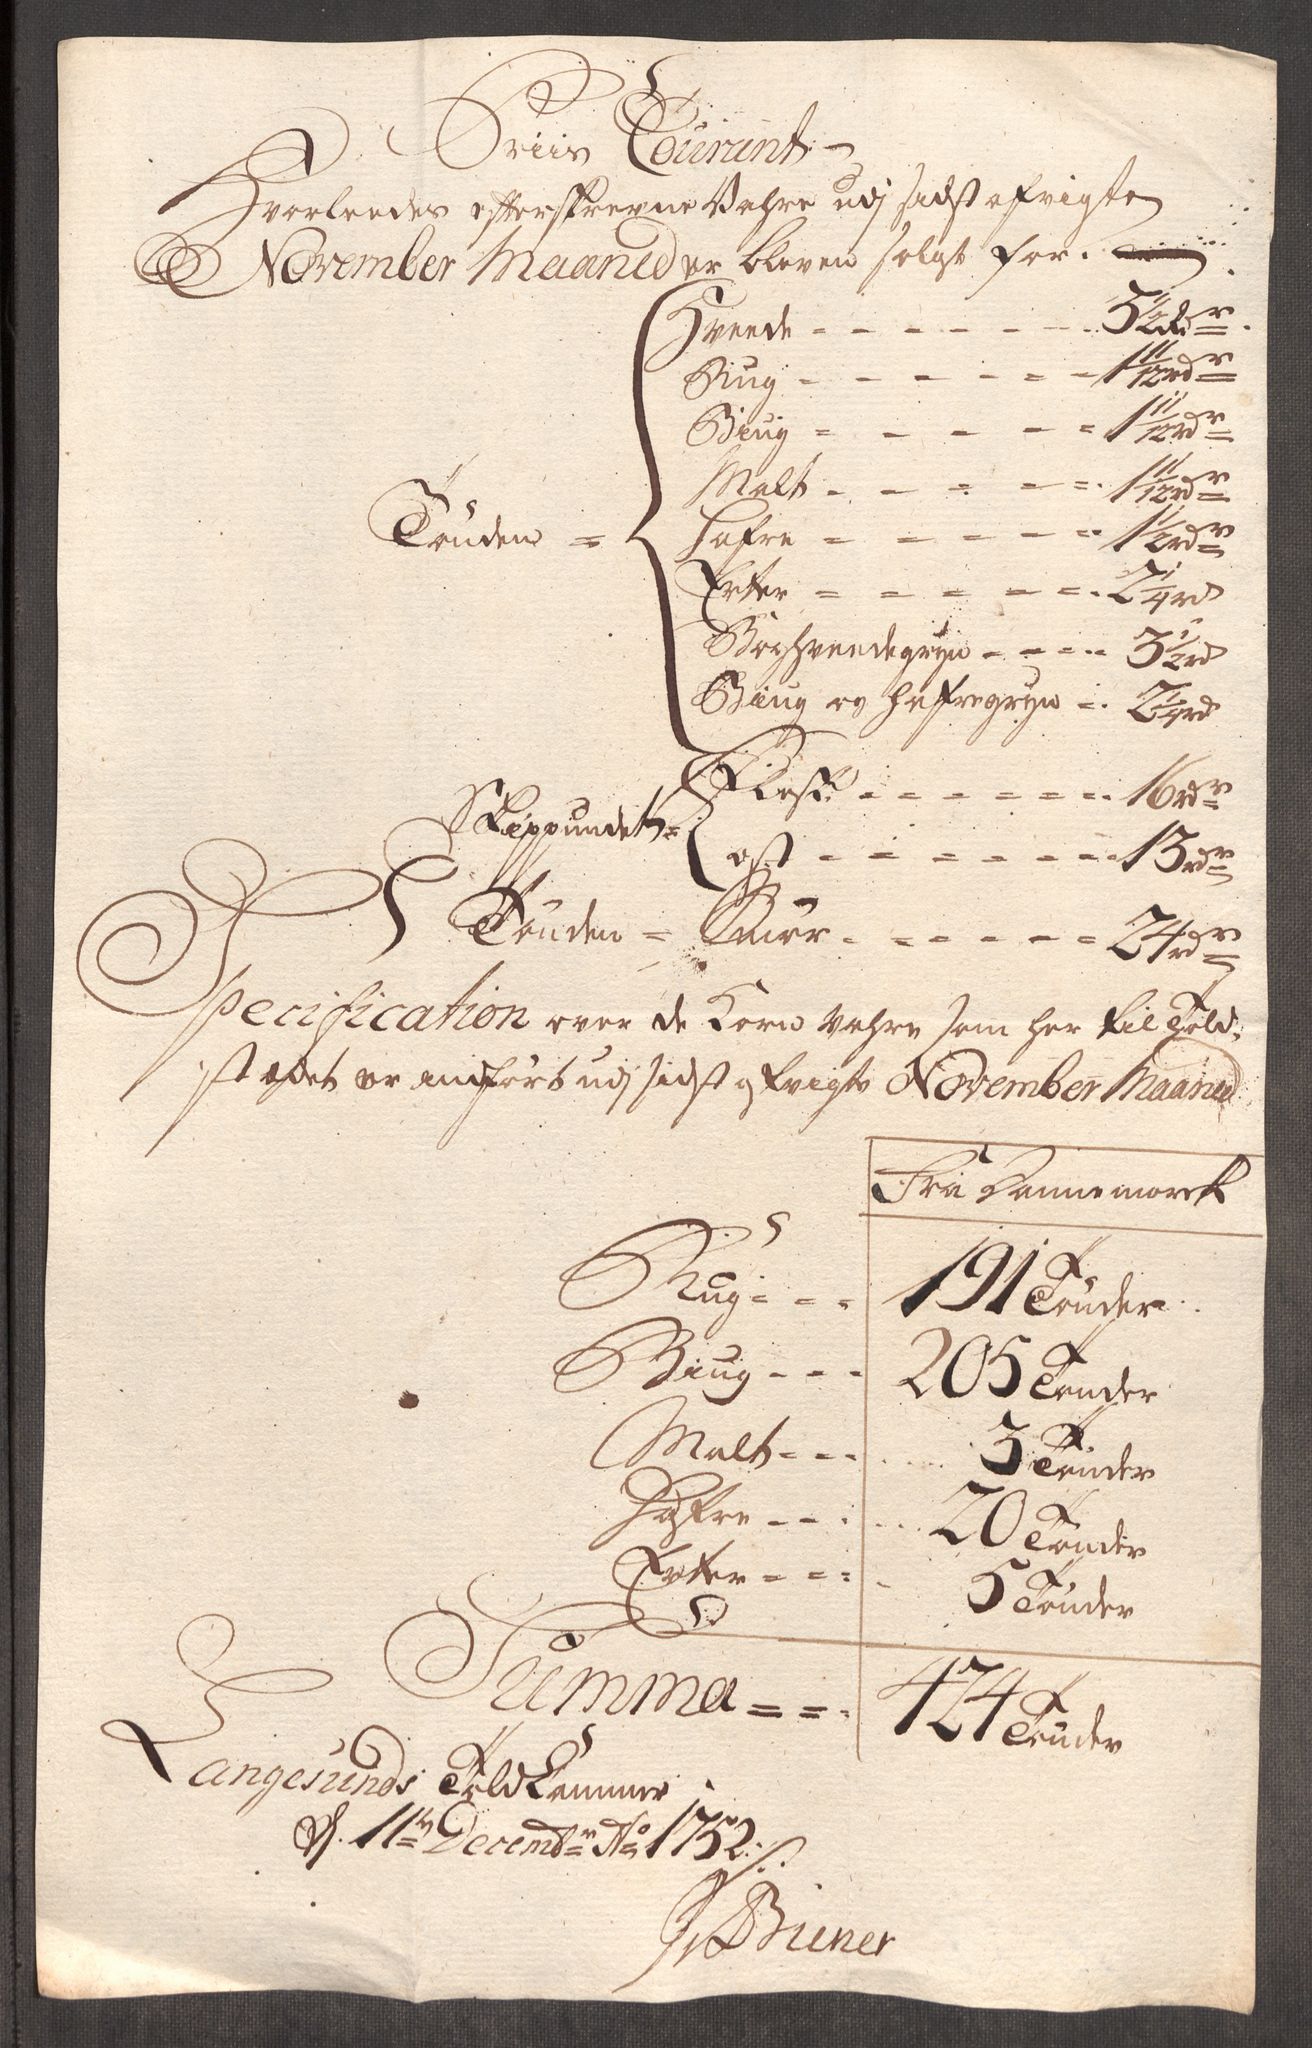 Priis Courant
Hvorleedes efterskrevne Vahre udj sidst afvigte
November Maaned er bleven solgt for.
Hveede - - - - - - 5 1/2 rdr
Rug - - - - = - 1 11/12 rdr
Biug = - - - = 1 11/12 rdr
Malt - - = - = 1 11/12 rdr
Tønden = Hafre = - - - = 1 1/2 rdr
Erter = = = = = 2 1/4 rd
Boghveedegryn - - - 3 1/2 rd
Biug og Hafregryn = 2 1/4 rd
Skippundet = Flesk - - - - - - 16 rdr
ost - - - - - - 13 rdr
Tønden = Smør - - - - - 24 rdr
Specification over de Korn Vahre som her til Told-
stædet er indført udj sidst afvigte November Maaned
Fra Dannemarck
Rug - - = 191 Tønder
Biug - - - 205 Tønder
Malt - - - 3 Tønder
Hafre - - - 20 Tønder
Erter = = = 5 Tønder
Summa = = - 424 Tønder
Langesunds Told Kammer
d. 11te Decembr Ao 1752
Biener